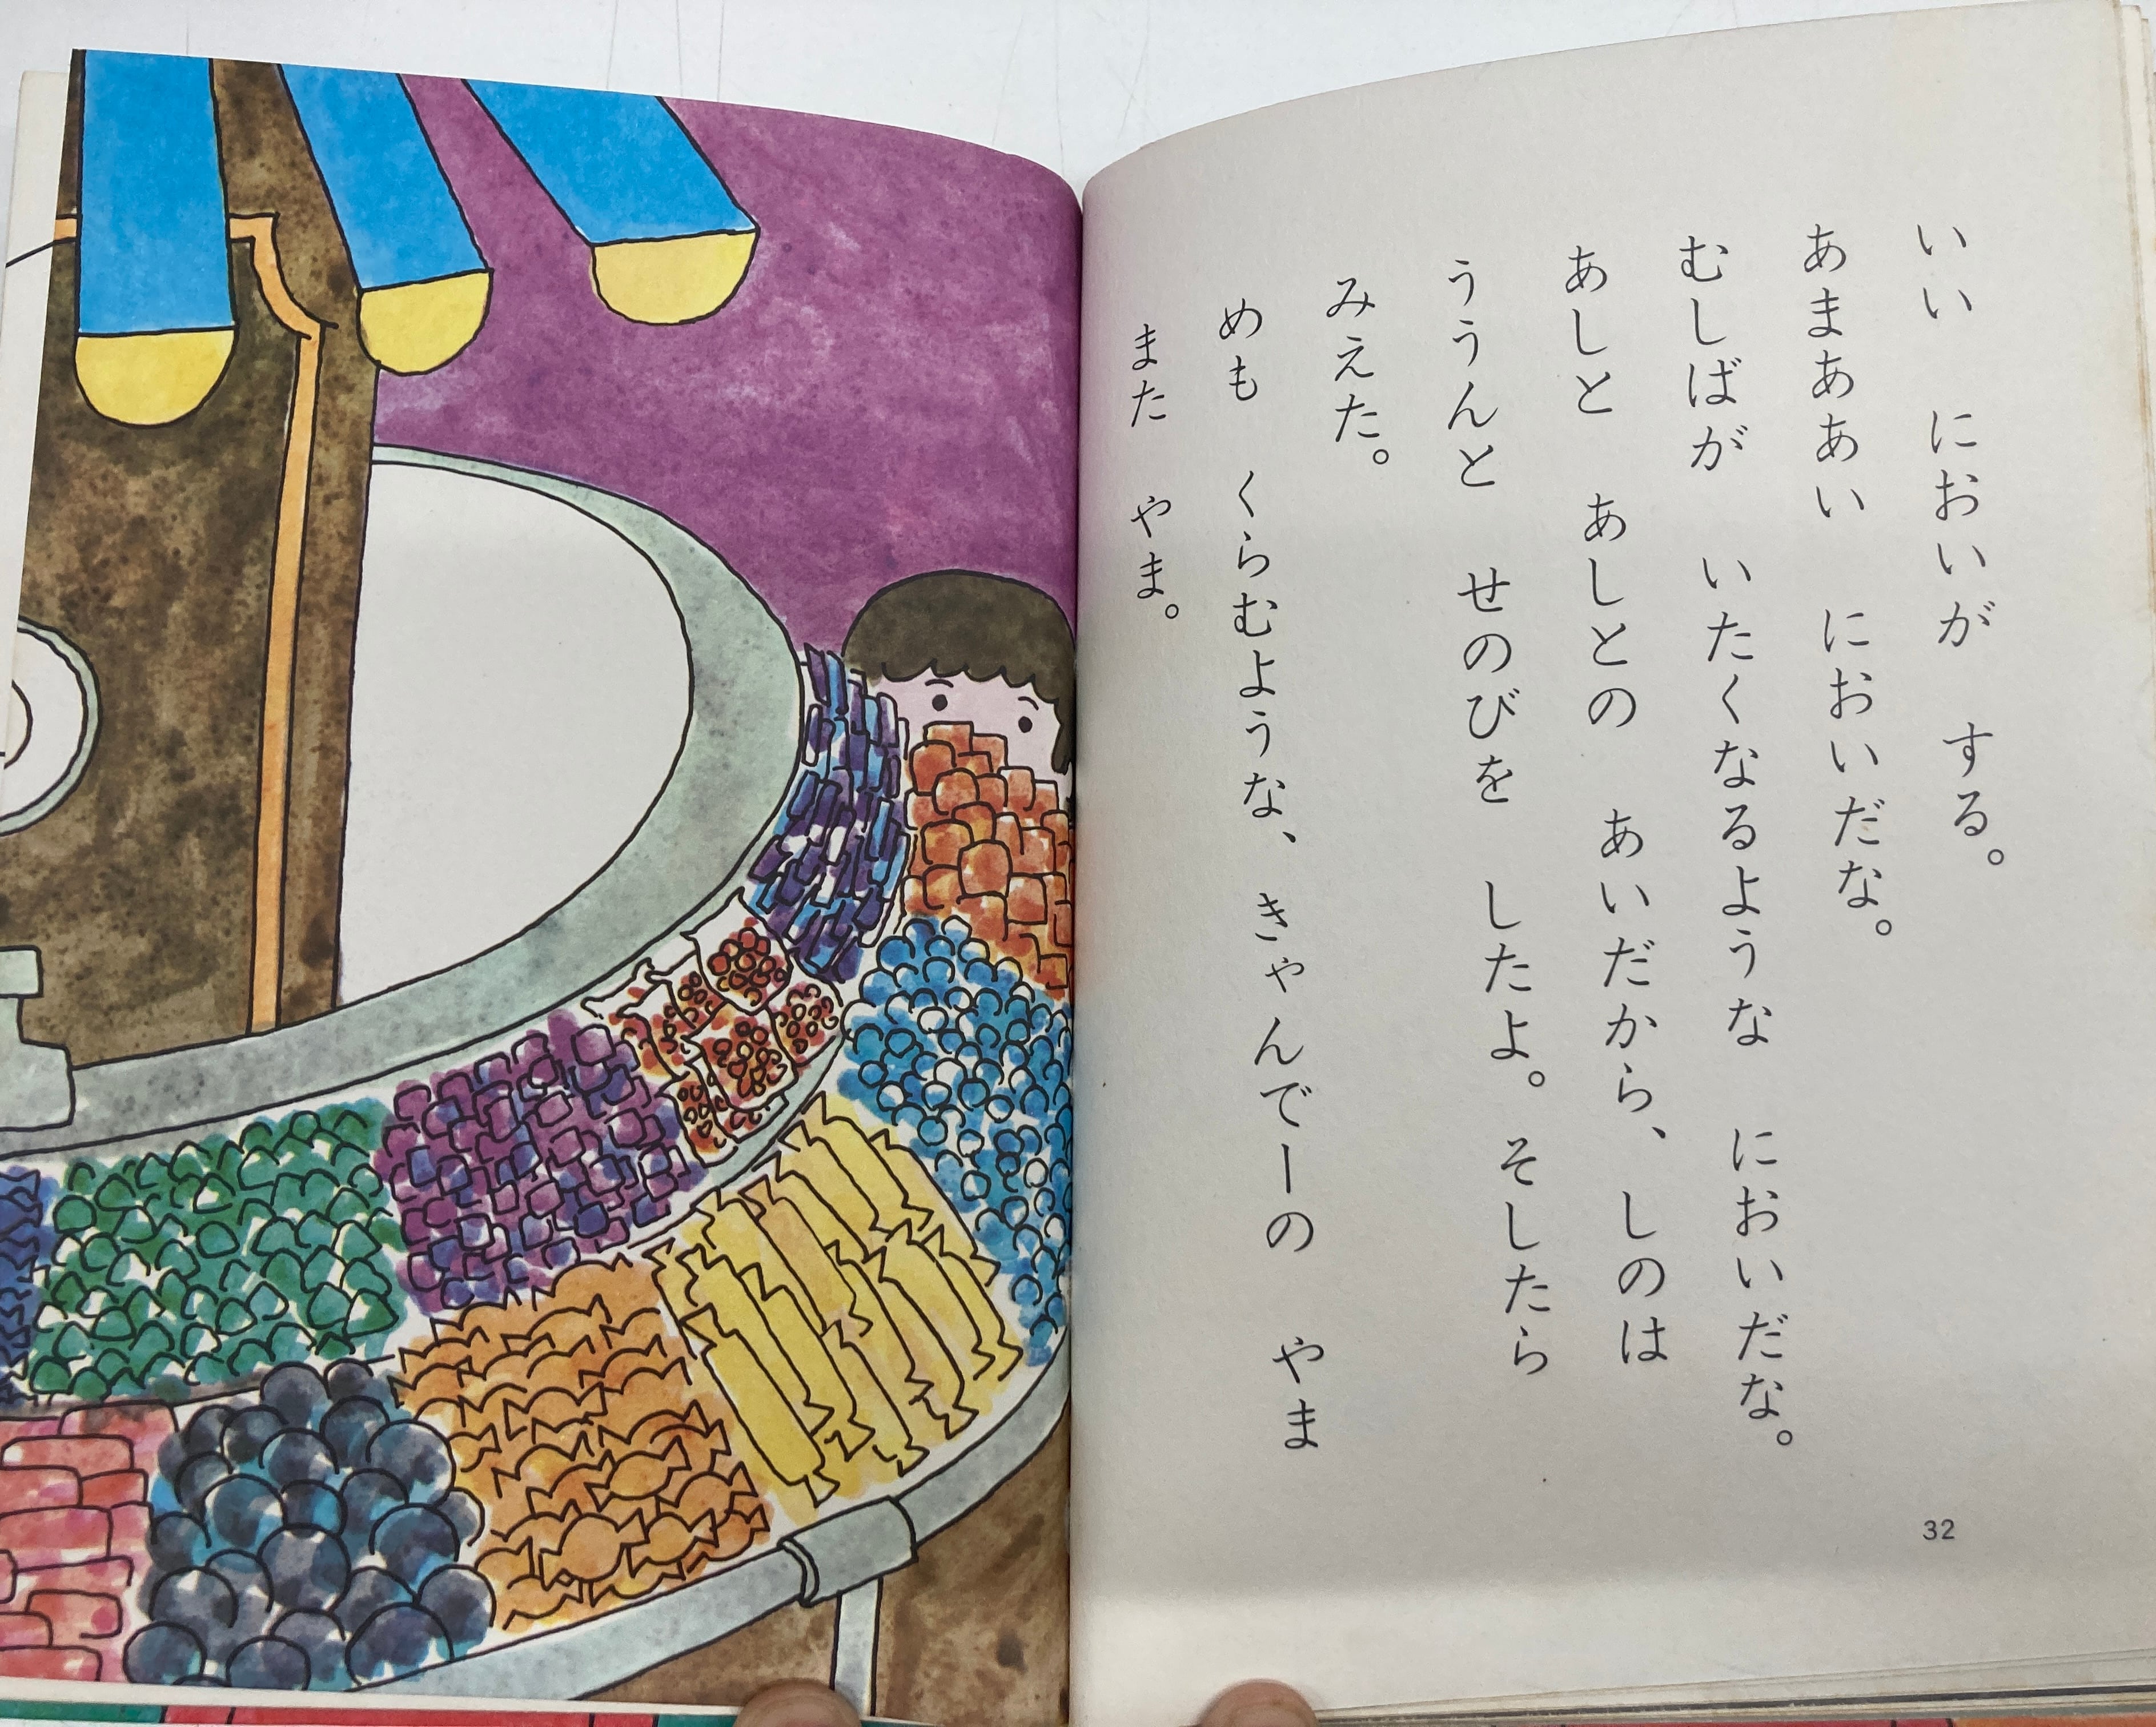 いい　においが　する。
あまああい　においだな。
むしばが　いたくなるような　においだな。
あしと　あしとの　あいだから、しのは
ううんと　せのびを　したよ。そしたら
みえた。
めも　くらむような、きゃんでーの　やま
また　やま。
32